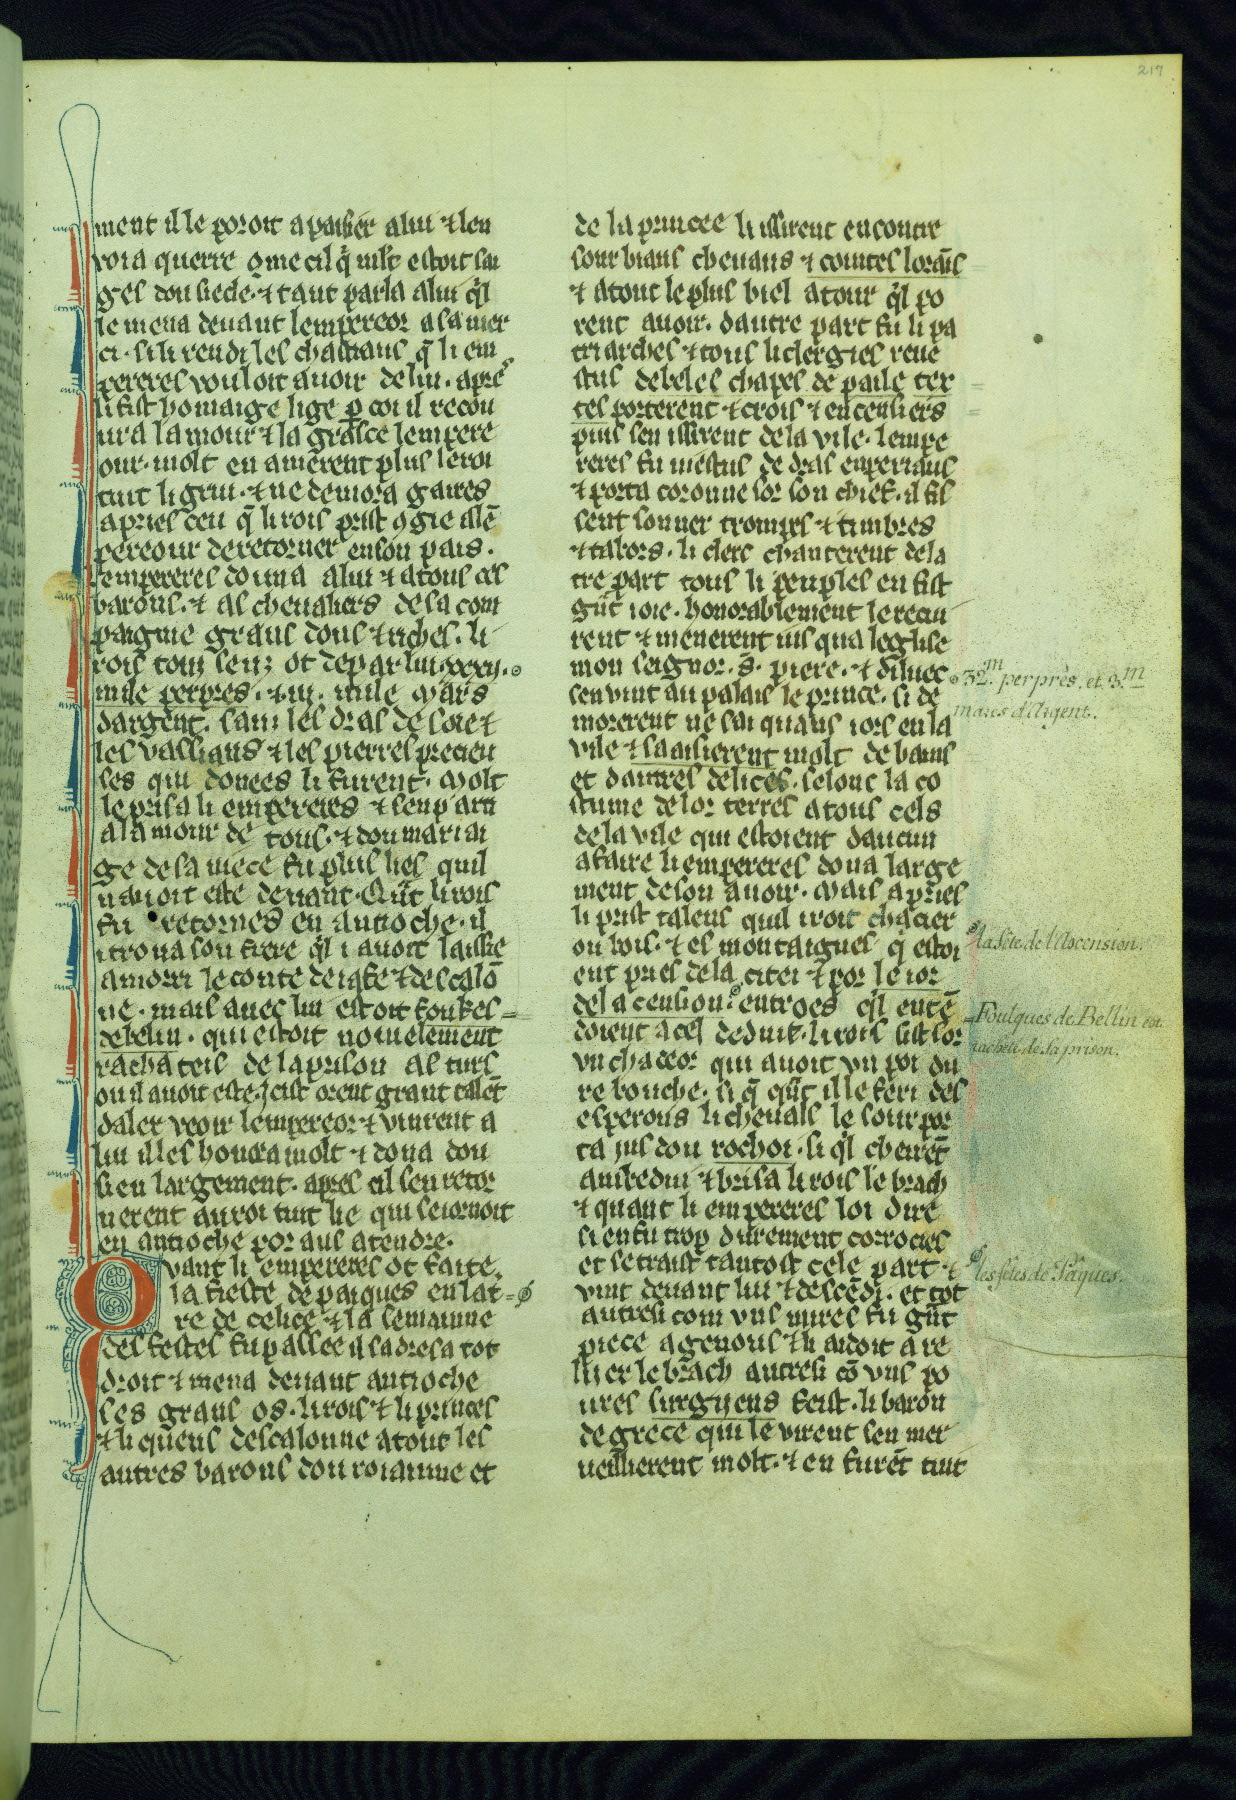 217
ment il le poroit apaisier a lui ⁊ len
voia querre ꝯme cil q̃ mlt' estoit sai
ges dou siecle. ⁊ tant parla a lui q̃l
le mena deuant lempereor a sa mer
ci. si li rendi les chastiaus q̃ li em
pereres vouloit auoir de lui. apre
li fist homaige lige ꝑ coi il recou
ura lamour ⁊ la grasce lempere
our. molt en amerent plus le roi
tuit li griu. ⁊ ne demora gaires
apries ceu q̃ li rois prist ꝯgie a lē
pereour de retorner en son pais.
lempereres douna a lui ⁊ a tous ces
barons. ⁊ as cheualiers de sa com
paignie grans dons ⁊ riches. li
rois touz seuz ot de par lui .xxxij.
mile perpres. ⁊ .iij. mile mars
dargent. sans les dras de soie ⁊
les vassiaus ⁊ les pierres precieu
ses qui donees li furent. Molt
le prisa li empereres ⁊ sen parti
a lamour de tous. ⁊ dou mariai
ge de sa niece fu plus lies quil
nauoit este deuant. Qūt li rois
fu retornes en antioche. il
i troua son frere q̃l i auoit laissie
amorri le conte de iaffe ⁊ descalo
ne. mais auec lui estoit foukes
debelin. qui estoit nouuelement
rachateis de la prison as turs
ou il auoit este. J cist orent grant talēt
daler veoir lempereor ⁊ vinrent a
lui il les houora molt ⁊ dona dou
sien largement. apres cil sen retor
nerent au roi tuit lie qui seiornoit
en antioche por aus atendre.
Quant li empereres ot faite
la fieste de paiques en lat
re de celice ⁊ la semainne
des festes fu passee il sadresa tot
droit ⁊ mena deuant antioche
ses grans os. li rois ⁊ li princes
⁊ li quens descalonne a tout les
autres barons dou roiaume et
de la princee li issirent encontre
sour biaus cheuaus ⁊ cointes lorains
⁊ a tout le plus biel atour q̃l po
rent auoir. dautre part fu li pa
triarches ⁊ tous li clergies reue
stus de beles chapes de paile tex
tes porterent ⁊ crois ⁊ encensiers
puis sen issirent de la vile. lempe
reres fu uiestus de dras enperiaus
⁊ porta coronne sor son chief. il fis
sent sonner trompes ⁊ timbres
⁊ tabors. li clerc chanterent de la
tre part tous li peuples en fist
gūt ioie. honorablement le recu
rent ⁊ menerent iusqua leglise
mon seignor .s. piere. ⁊ diluec
sen vint au palais le prince. si de
morerent ne sai quans iors en la
vile ⁊ saaisierent molt de bains
et dautres delices. selonc la co
stume de lor terres a tous cels
de la vile qui estoient daucun
afaire li empereres dona large
ment de son auoir. Mais apries
li prist talens quil iroit chacier
ou bois. ⁊ es montaignes q̃ estoi
ent pries de la citei ⁊ por le ior
de lacension. entroes q̃l entē
doient a cel deduit. li rois sist sor
vn chaceor qui auoit vn poi du
re bouche. si q̃ qūt il le feri des
esperons li cheuals le sourpor
ta jus dou rochoi. si q̃l cheirēt
ambedui ⁊ brisa li rois le brach
⁊ quant li empereres loi dire
si en fu trop durement corrocies
et se traist tantost cele part. ⁊
vint deuant lui ⁊ descēdi. et tot
autresi com vns mires fu gūt
piece agenous ⁊ li aidoit a re
lier le brach autresi cō vns po
ures surgijens feist. li baron
de grece qui le virent sen mer
ueillierent molt. ⁊ en furēt tuit
32.m perprès, et 3.m
marcs d'Argent.
la fête de l'Ascension.
Foulques de Bellin est
racheté de sa prison.
les fêtes de Pâques.